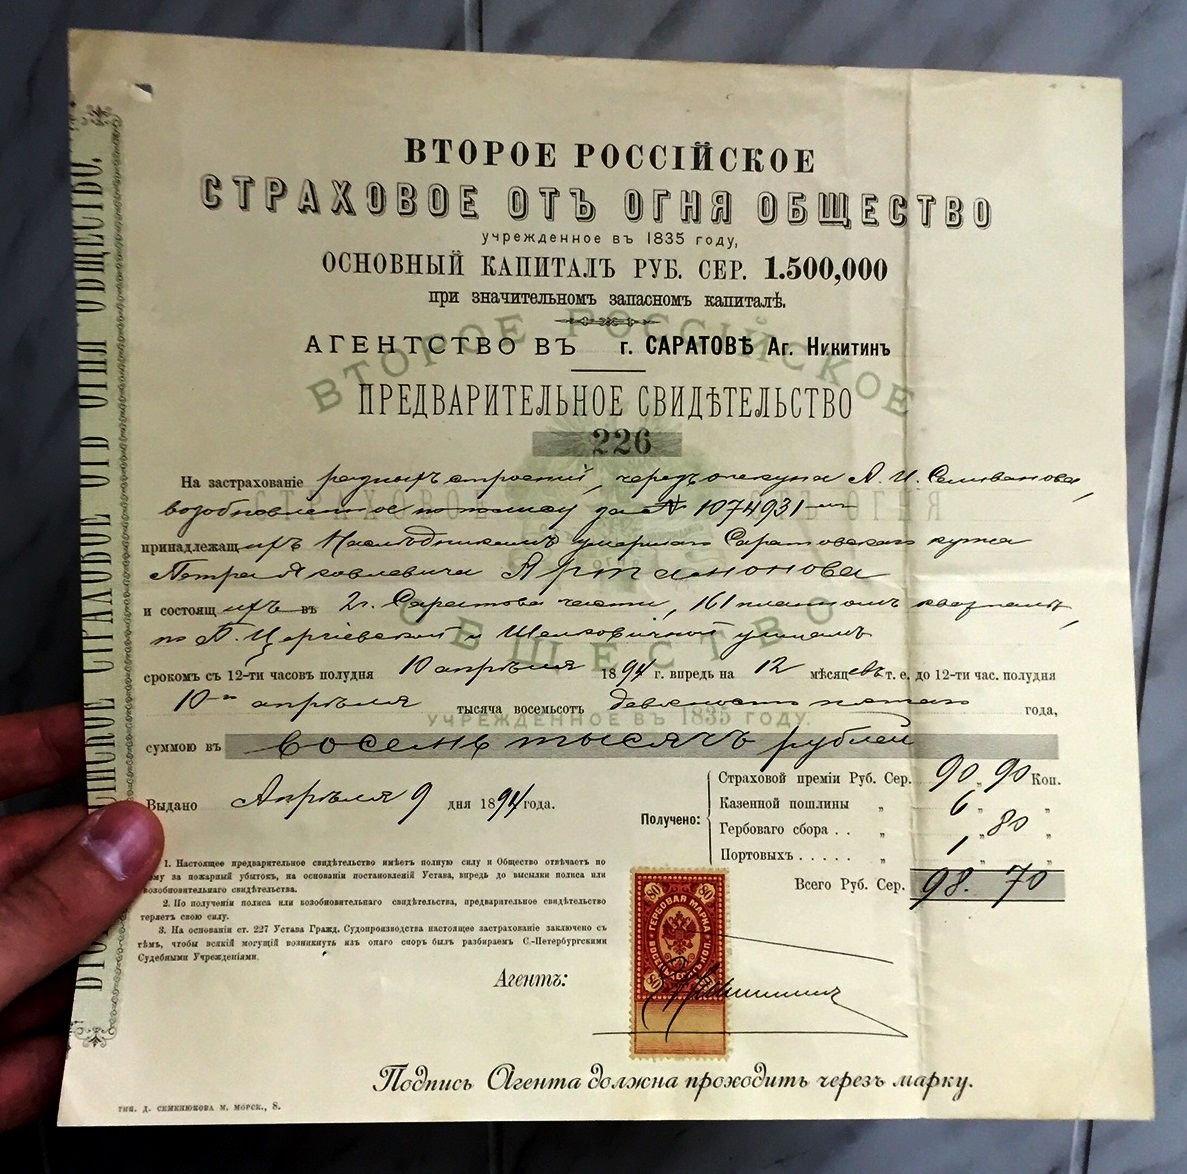 ВТОРОЕ РОССІЙСКОЕ
СТРАХОВОЕ ОТЪ ОГНЯ ОБЩЕСТВО
учрежденное въ 1835 году,
ОСНОВНЫЙ КАПИТАЛЪ РУБ. СЕР. 1.500,000
при значительномъ запасномъ капиталѣ.
АГЕНТСТВО ВЪ г. САРАТОВѢ Аг. Никитинъ
ПРЕДВАРИТЕЛЬНОЕ СВИДѢТЕЛЬСТВО
226
На застрахованіе разныхъ строеній, черезъ опекуна А. И. Селиванова,
возобновленное по полису за № 1074931
принадлежащихъ Наслѣдникамъ умершаго Саратовскаго купца
Петра Яковлевича Артамонова
и состоящихъ въ 2й. Саратова части, 161 планномъ кварталѣ,
по Б. Сергіевской и Шелковичной улицамъ
срокомъ съ 12-ти часовъ полудня 10 апрѣля 1894 г. впредь на 12 мѣсяцевъ т. е. до 12-ти час. полудня
10го апрѣля тысяча восемьсотъ девяносто пятаго года,
суммою въ восемь тысячъ рублей
Выдано Апрѣля 9 дня 1894 года.
Получено:
Страховой преміи Руб. Сер. 90 „ 90 Коп.
Казенной пошлины „ 6 „ „
Гербоваго сбора . . „ „ 80 „
Портовыхъ . . . . . „ 1 „ „
Всего Руб. Сер. 98. 70
1. Настоящее предварительное свидѣтельство имѣетъ полную силу и Общество отвѣчаетъ по
за пожарный убытокъ, на основаніи постановленій Устава, впредь до высылки полиса или
возобновительнаго свидѣтельства.
2. По полученіи полиса или возобновительнаго свидѣтельства, предварительное свидѣтельство
теряетъ свою силу.
3. На основаніи ст. 227 Устава Гражд. Судопроизводства настоящее застрахованіе заключено съ
тѣмъ, чтобы всякій могущій возникнуть изъ онаго споръ былъ разбираемъ С.-Петербургскими
Судебными Учрежденіями.
Агентъ:
80 80
ГЕРБОВАЯ МАРКА
ВОСЕМЬДЕСЯТЪ КОП.
80
Подпись Агента должна проходить черезъ марку.
тип. д. семенюкова м. морск., 8.
СТРАХОВОЕ ОТЪ ОГНЯ ОБЩЕСТВО.
ВТОРОЕ РОССІЙСКОЕ
СТРАХОВОЕ ОТЪ ОГНЯ
ОБЩЕСТВО
УЧРЕЖДЕННОЕ ВЪ 1835 ГОДУ.